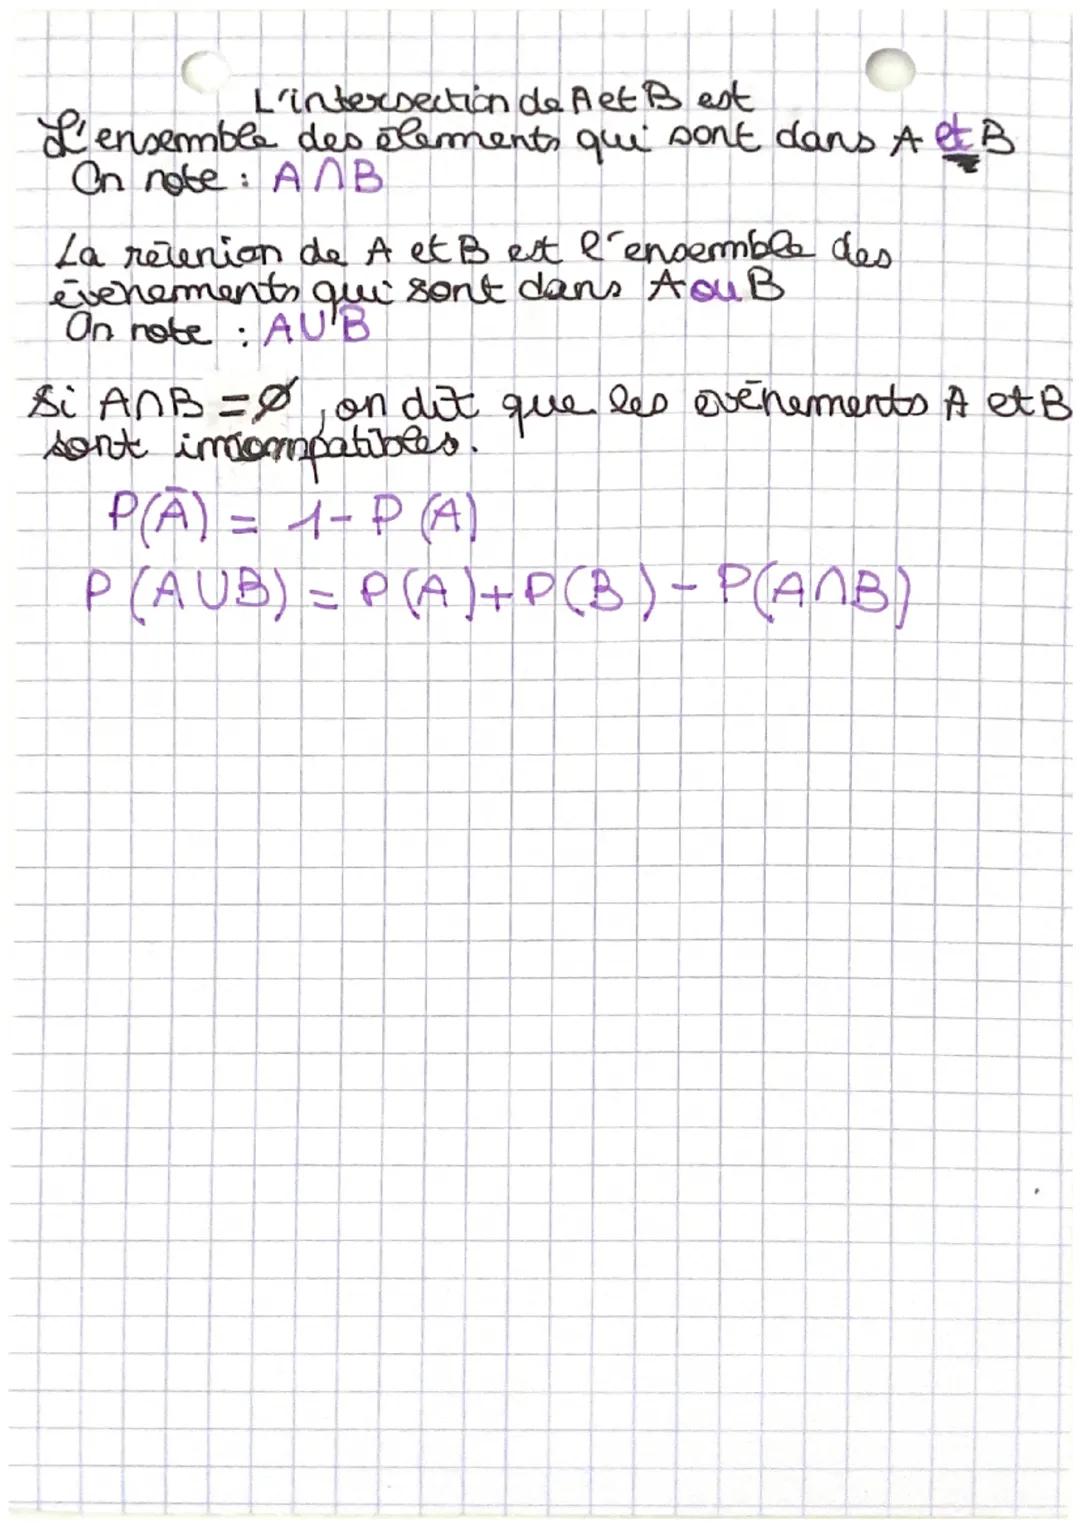 L'intersection de A et B est
L'ensemble des élements qui sont dans A et B
On note : A∩B
La réunion de A et B est l'ensemble des
évenements qui sont dans A ou B
On note : A∪B
Si A∩B = Ø, on dit que les evénements A et B
sont imcompatibles.
P(Ā) = 1 - P(A)
P(A∪B) = P(A) + P(B) - P(A∩B)